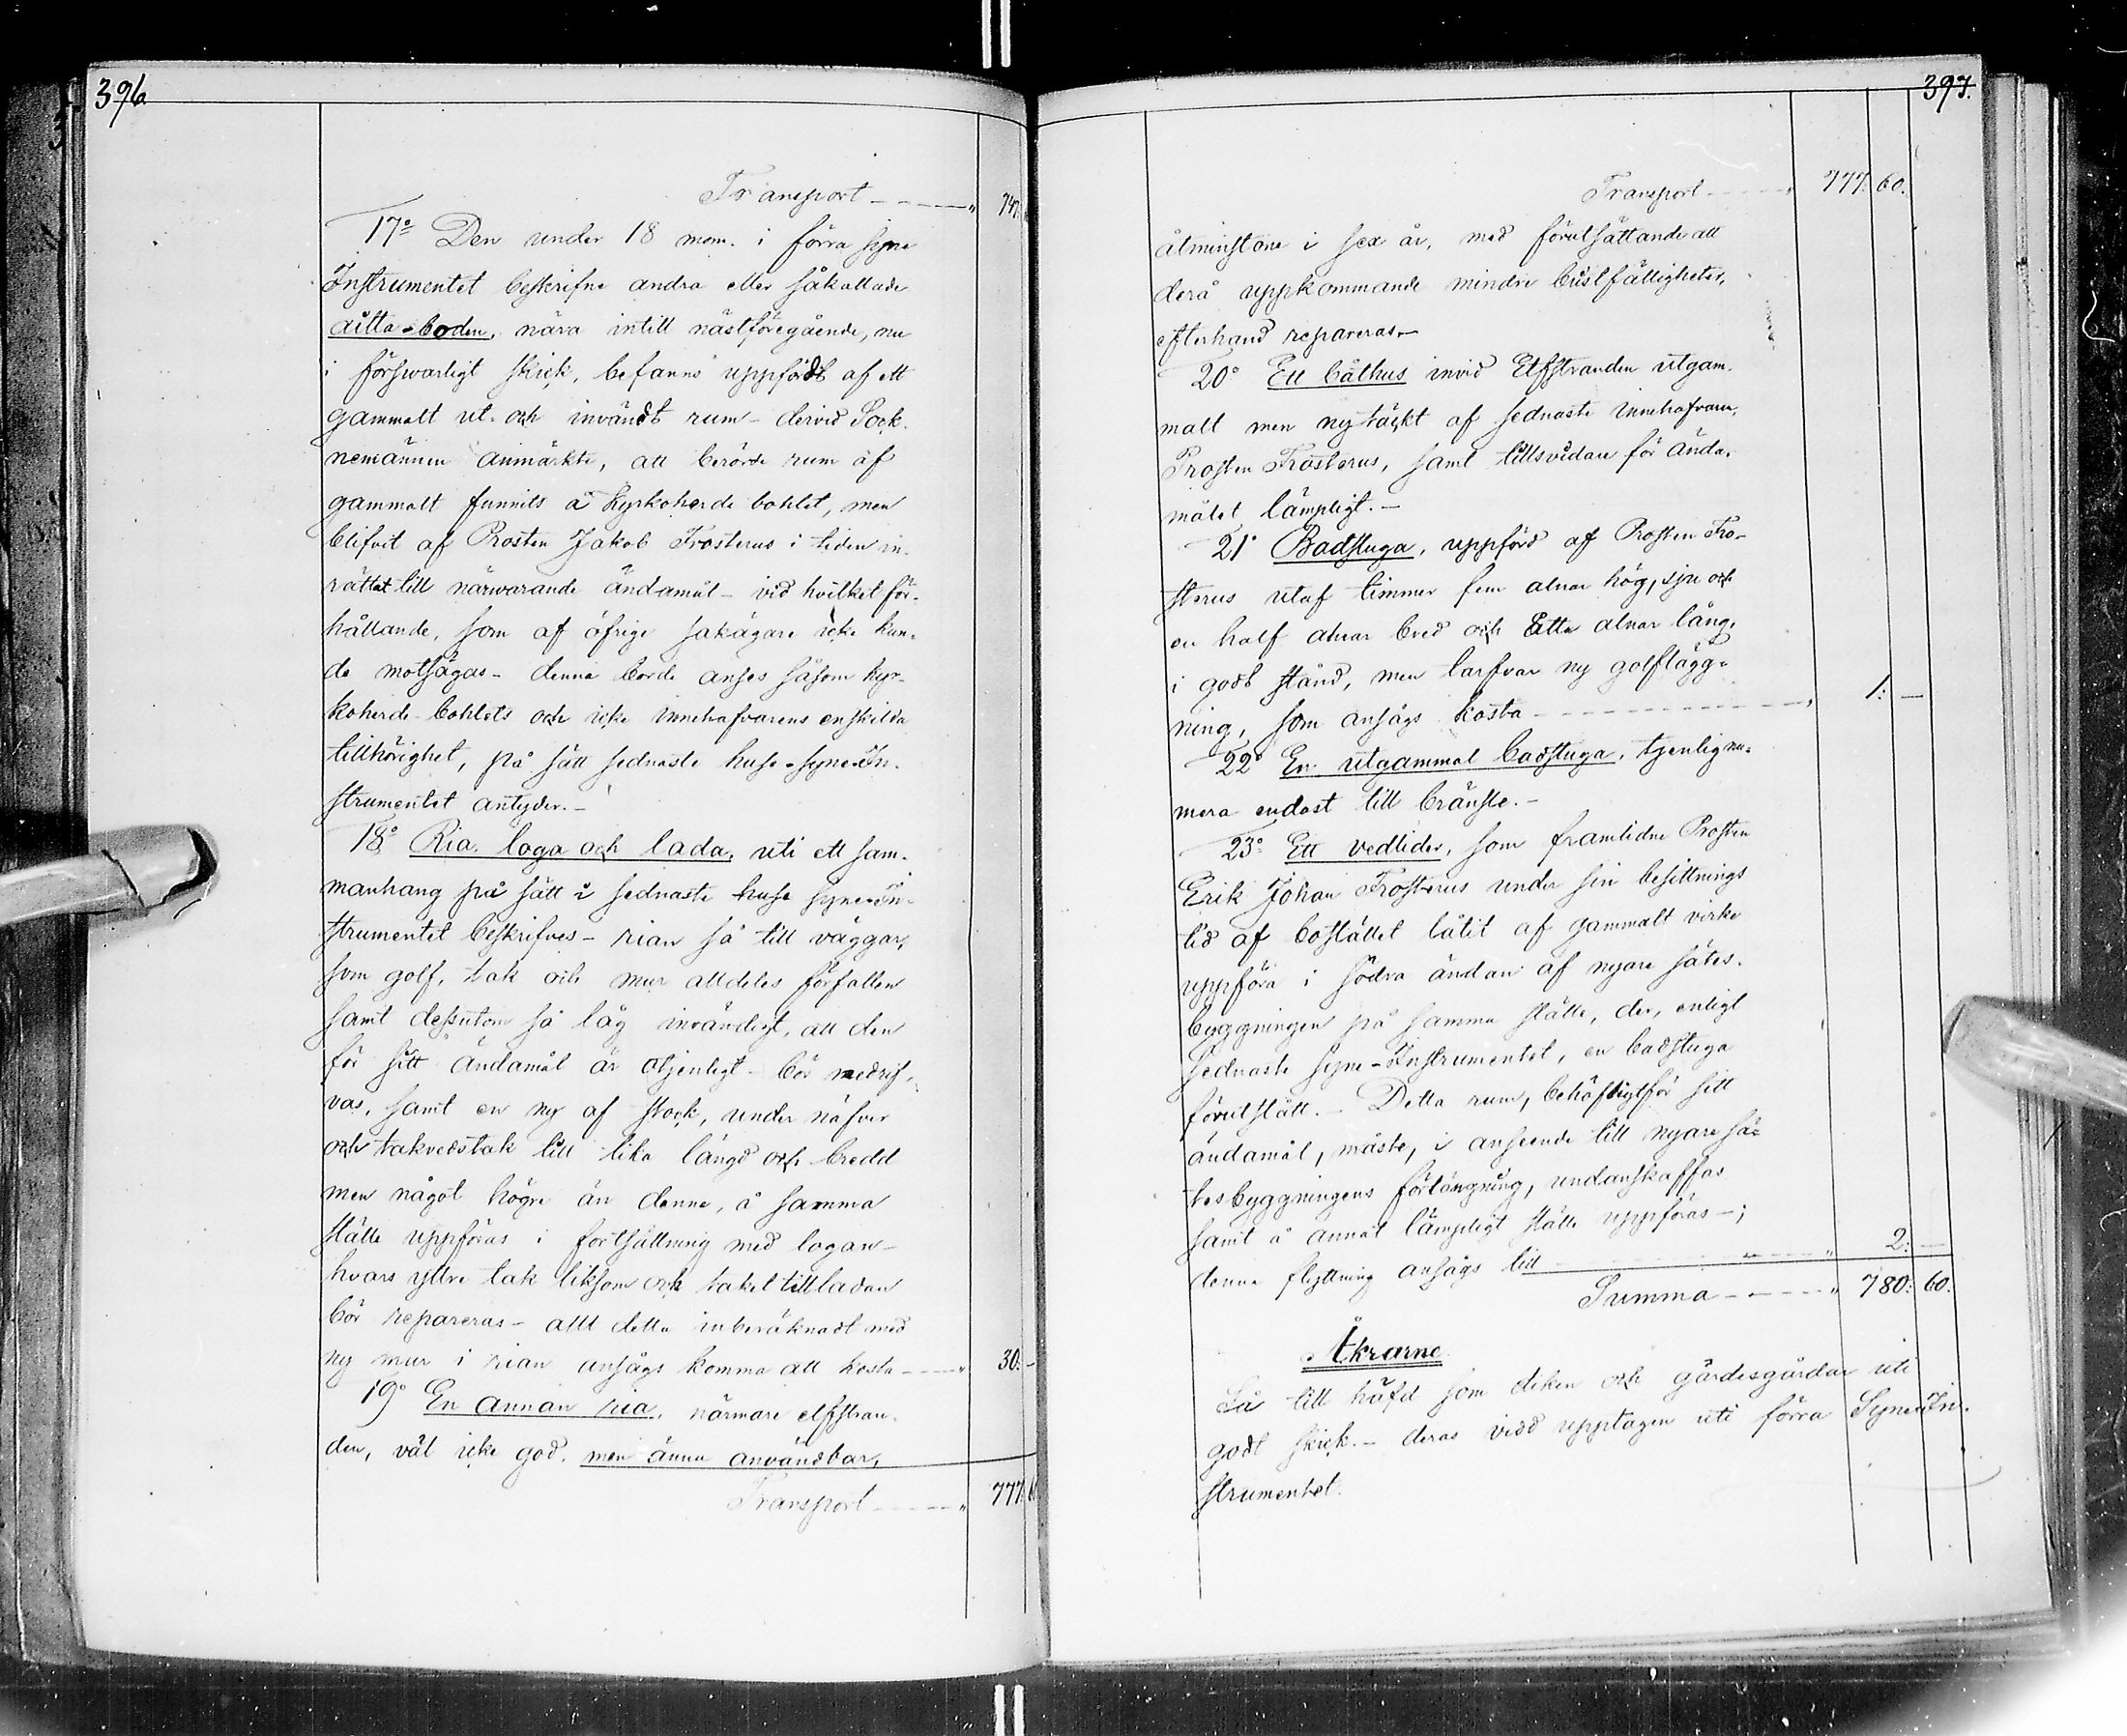 396.
Transport - - - - " 747.
17º Den under 18 mom. i förra syne
Instrumentet beskrifne andra eller såkallade
aitta-boden, nära intill nästföregående, nu
i försvarligt skick, befanns uppfördt af ett
gammalt ut- och invändt rum - dervid Sock-
nemännen anmärkte, att berörde rum af
gammalt funnits å Kyrkoherde bohlet, men
blifvit af Prosten Jakob Frosterus i tiden in-
rättat till närvarande ändamål - vid hvilket för-
hållande, som af öfrige sakägare icke kun-
de motsägas - denna borde anses såsom kyr-
koherde-bohlets och icke innehafvarens enskilda
tillhörighet, på sätt sednaste huse-syne-In-
strumentet antyder. -
18º Ria, loga och lada, uti ett sam-
manhang på sätt i sednaste huse syne-In-
strumentet beskrifves - rian så till väggar,
som golf, tak och mur alldeles förfallen
samt dessutom så låg invändigt, att den
för sitt ändamål är otjenligt - bör nedrif-
vas, samt en ny af stock, under näfver
och takvedstak till lika längd och bredd
men något högre än denne, å samma
ställe uppföras i fortsättning med logan -
hvars yttre tak liksom och taket till ladan
bör repareras - allt detta inberäknadt med
ny mur i rian ansågs komma att kosta - - - " 30: -
19º En annan ria, närmare elfstran-
den, väl icke god, men ännu användbar,
Transport - - - - " 777. 6
397.
Transport - - - - " 777: 60.
åtminstone i sex år, med förutsättande att
derå uppkommande mindre bristfälligheter,
efterhand repareras. -
20º Ett båthus invid Elfstranden utgam-
malt men nytäckt af sednaste innehafvaren,
Prosten Frosterus, samt tillsvidare för ända-
målet lämpligt. -
21º Badstuga, uppförd af Prosten Fro-
sterus utaf timmer fem alnar hög, sju och
en half alnar bred och åtta alnar lång,
i godt stånd, men tarfvar ny golflägg-
ning, som ansågs kosta - - - - - - - " 1: -
22º En utgammal badstuga, tjenlig nu-
mera endast till bränsle. -
23º Ett vedlider, som framlidne Prosten
Erik Johan Frosterus under sin besittnings
tid af bostället låtit af gammalt virke
uppföra i södra ändan af nyare sätes-
byggningen på samma ställe, der, enligt
sednaste syne-Instrumentet, en badstuga
förut stått. - Detta rum, behöfligt för sitt
ändamål, måste, i anseende till nyare sä-
tesbyggningens förlängning, undanskaffas
samt å annat lämpligt ställe uppföras - ;
denna flyttning ansågs till - - - - - " 2: -
Summa - - - - " 780: 60.
Åkrarne
Så till häfd som diken och gärdesgårdar uti
godt skick. - deras vidd upptagen uti förra Syne-In-
strumentet.